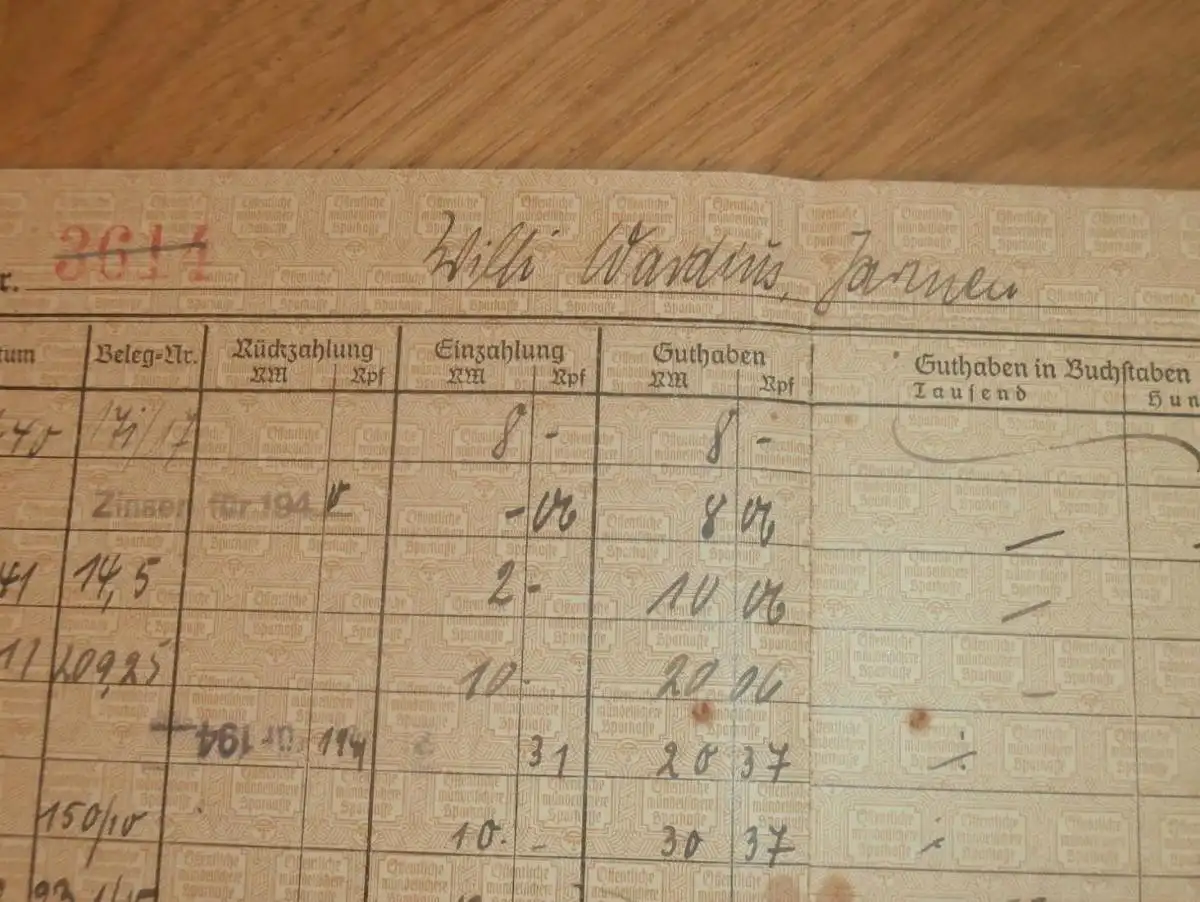 3614 Willi Wardius, Jarmen
Beleg-Nr. Rückzahlung Einzahlung Guthaben Guthaben in Buchstaben
RM Rpf RM Rpf RM Rpf Tausend Hun
40 17 8 - 8 -
Zinsen für 1940 - 06 8 06
41 14,5 2 - 10 06
11 209,25 10 - 20 06
für 194 31 20 37
150/10 10 - 30 37
Öffentliche mündelsichere Sparkasse